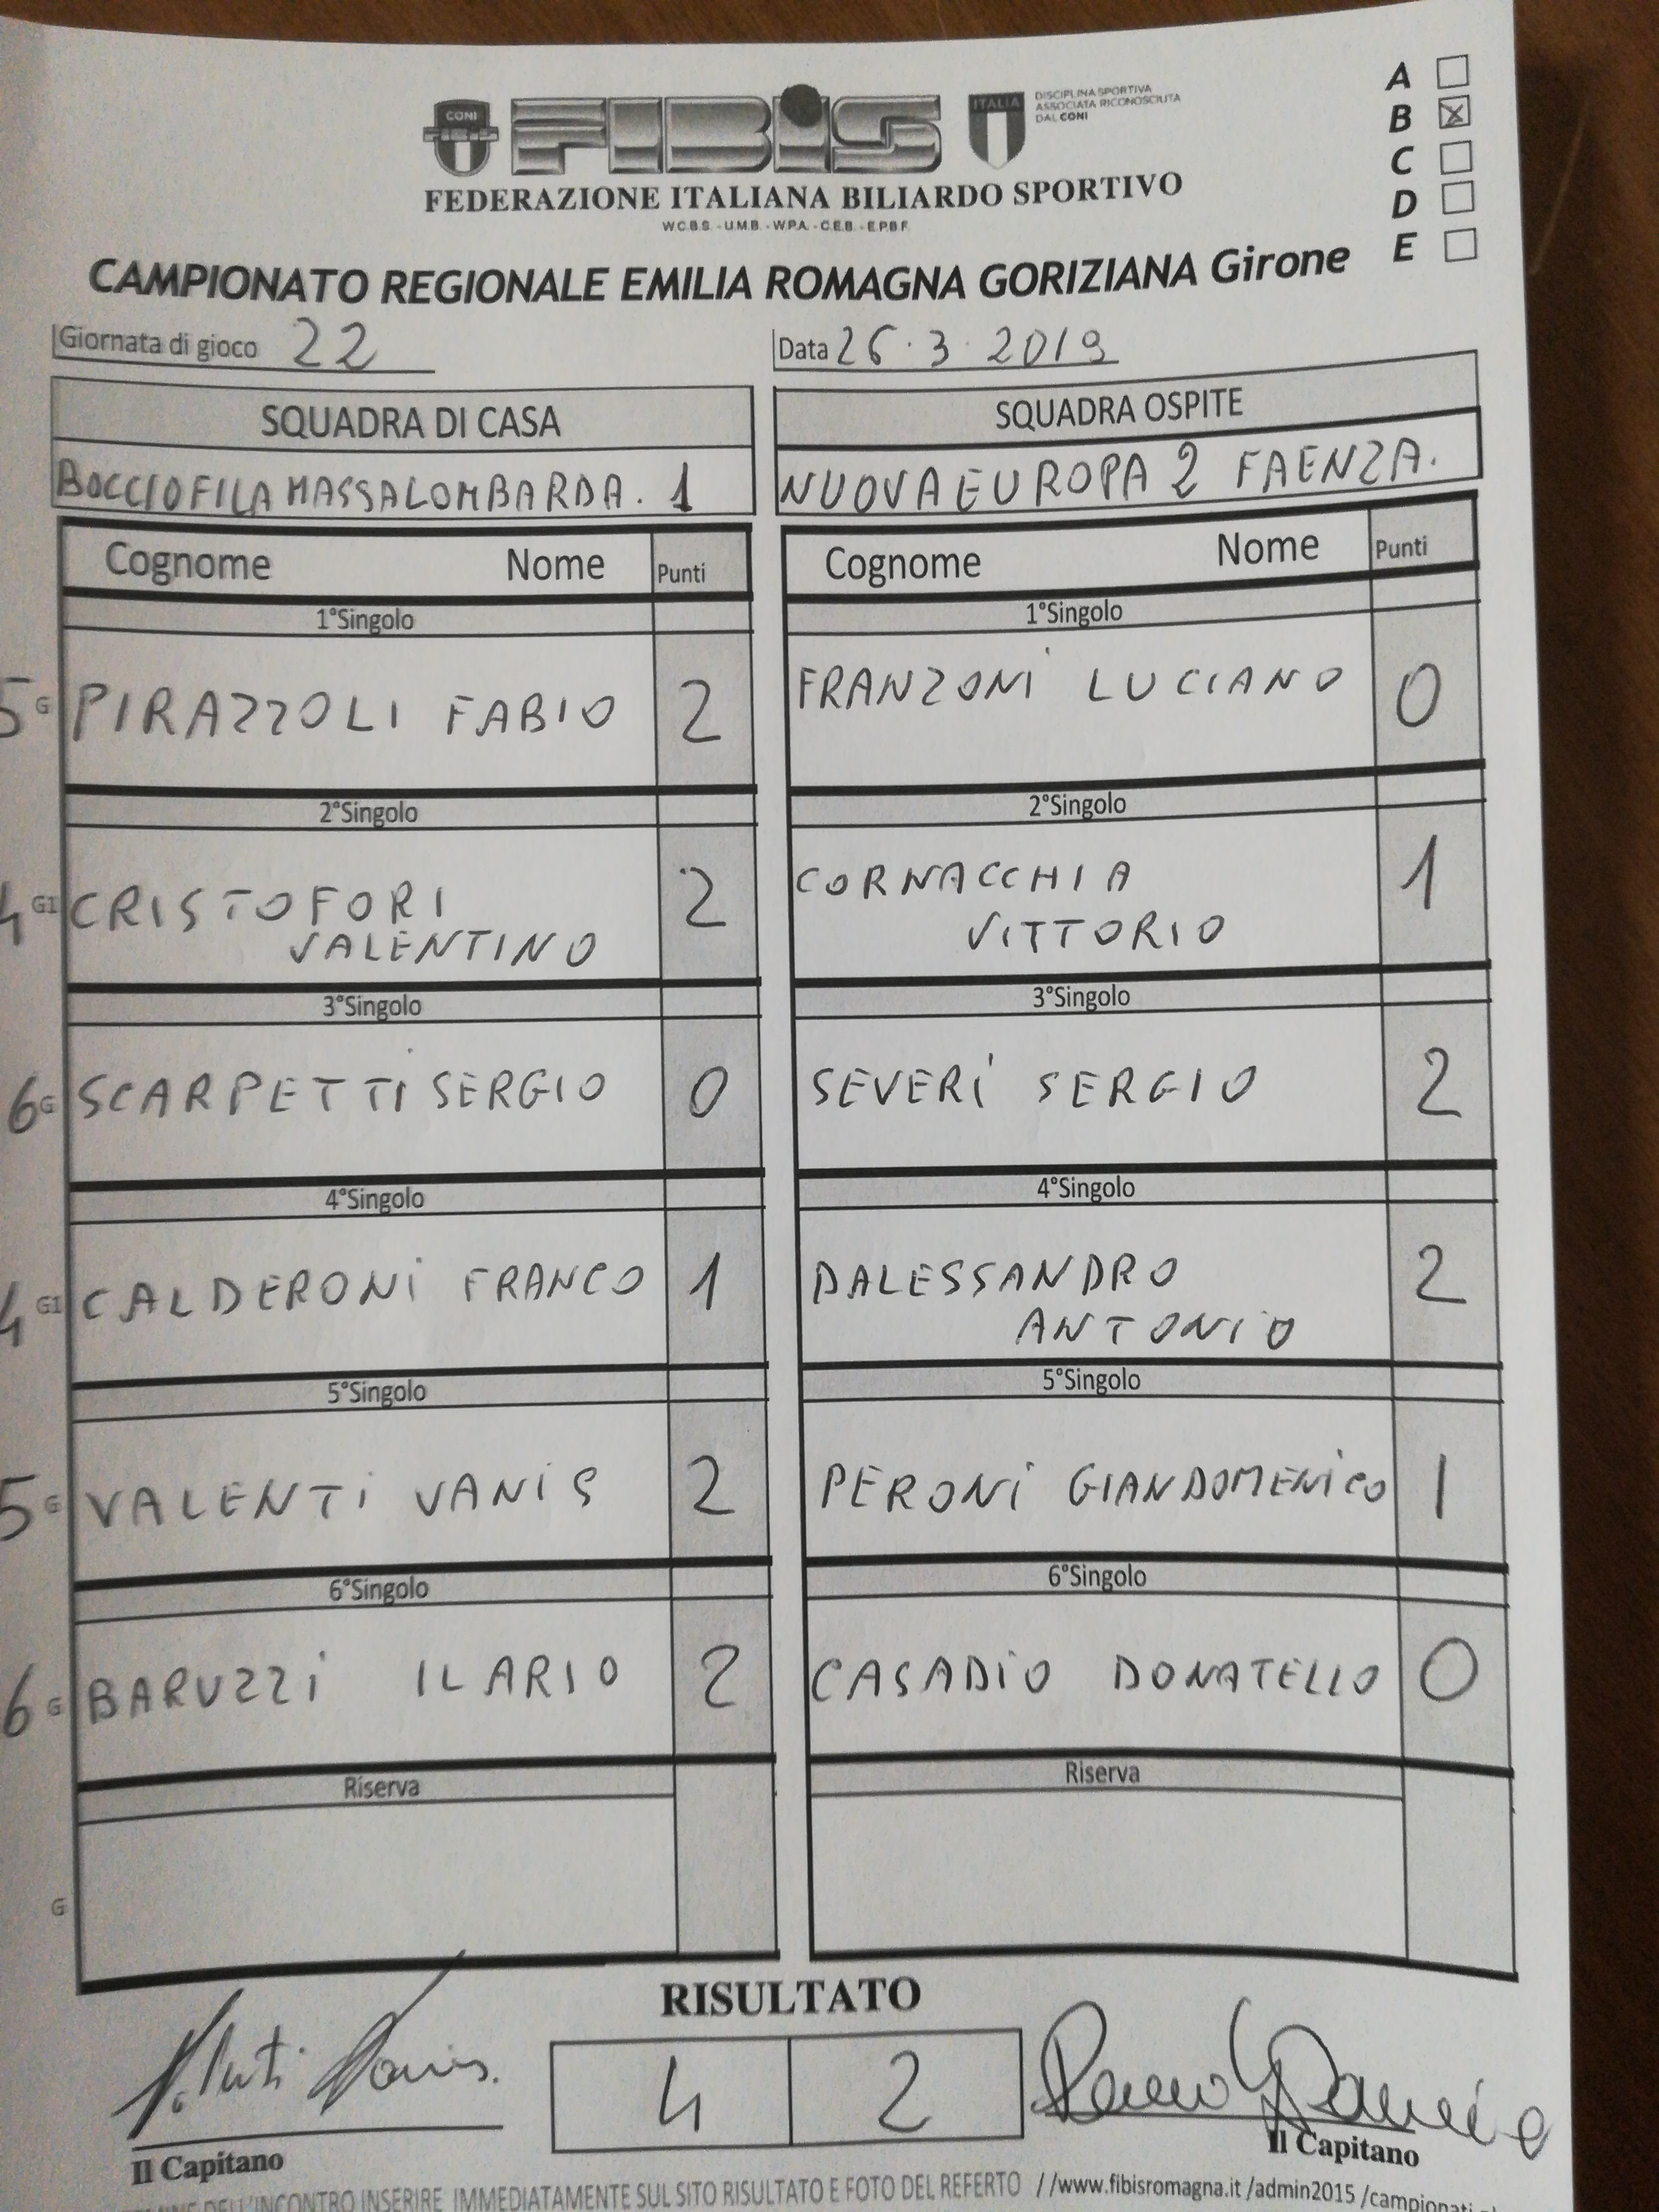 CONI
FIBIS
FIBiS
ITALIA
DISCIPLINA SPORTIVA
ASSOCIATA RICONOSCIUTA
DAL CONI
FEDERAZIONE ITALIANA BILIARDO SPORTIVO
W.C.B.S. - U.M.B. - W.P.A. - C.E.B. - E.P.B.F.
A
B X
C
D
E
CAMPIONATO REGIONALE EMILIA ROMAGNA GORIZIANA Girone
Giornata di gioco 22
Data 26.3.2019
SQUADRA DI CASA
SQUADRA OSPITE
BOCCIOFILA MASSALOMBARDA. 1
NUOVA EUROPA 2 FAENZA.
Cognome Nome Punti
Cognome Nome Punti
1°Singolo
1°Singolo
5 G PIRAZZOLI FABIO 2
FRANZONI LUCIANO 0
2°Singolo
2°Singolo
4 G1 CRISTOFORI 2
VALENTINO
CORNACCHIA 1
VITTORIO
3°Singolo
3°Singolo
6 G SCARPETTI SERGIO 0
SEVERI SERGIO 2
4°Singolo
4°Singolo
4 G1 CALDERONI FRANCO 1
DALESSANDRO 2
ANTONIO
5°Singolo
5°Singolo
5 G VALENTI VANIS 2
PERONI GIANDOMENICO 1
6°Singolo
6°Singolo
6 G BARUZZI ILARIO 2
CASADIO DONATELLO 0
Riserva
Riserva
G
RISULTATO
4 2
Il Capitano
Il Capitano
DELL'INCONTRO INSERIRE IMMEDIATAMENTE SUL SITO RISULTATO E FOTO DEL REFERTO //www.fibisromagna.it/admin2015/campionati